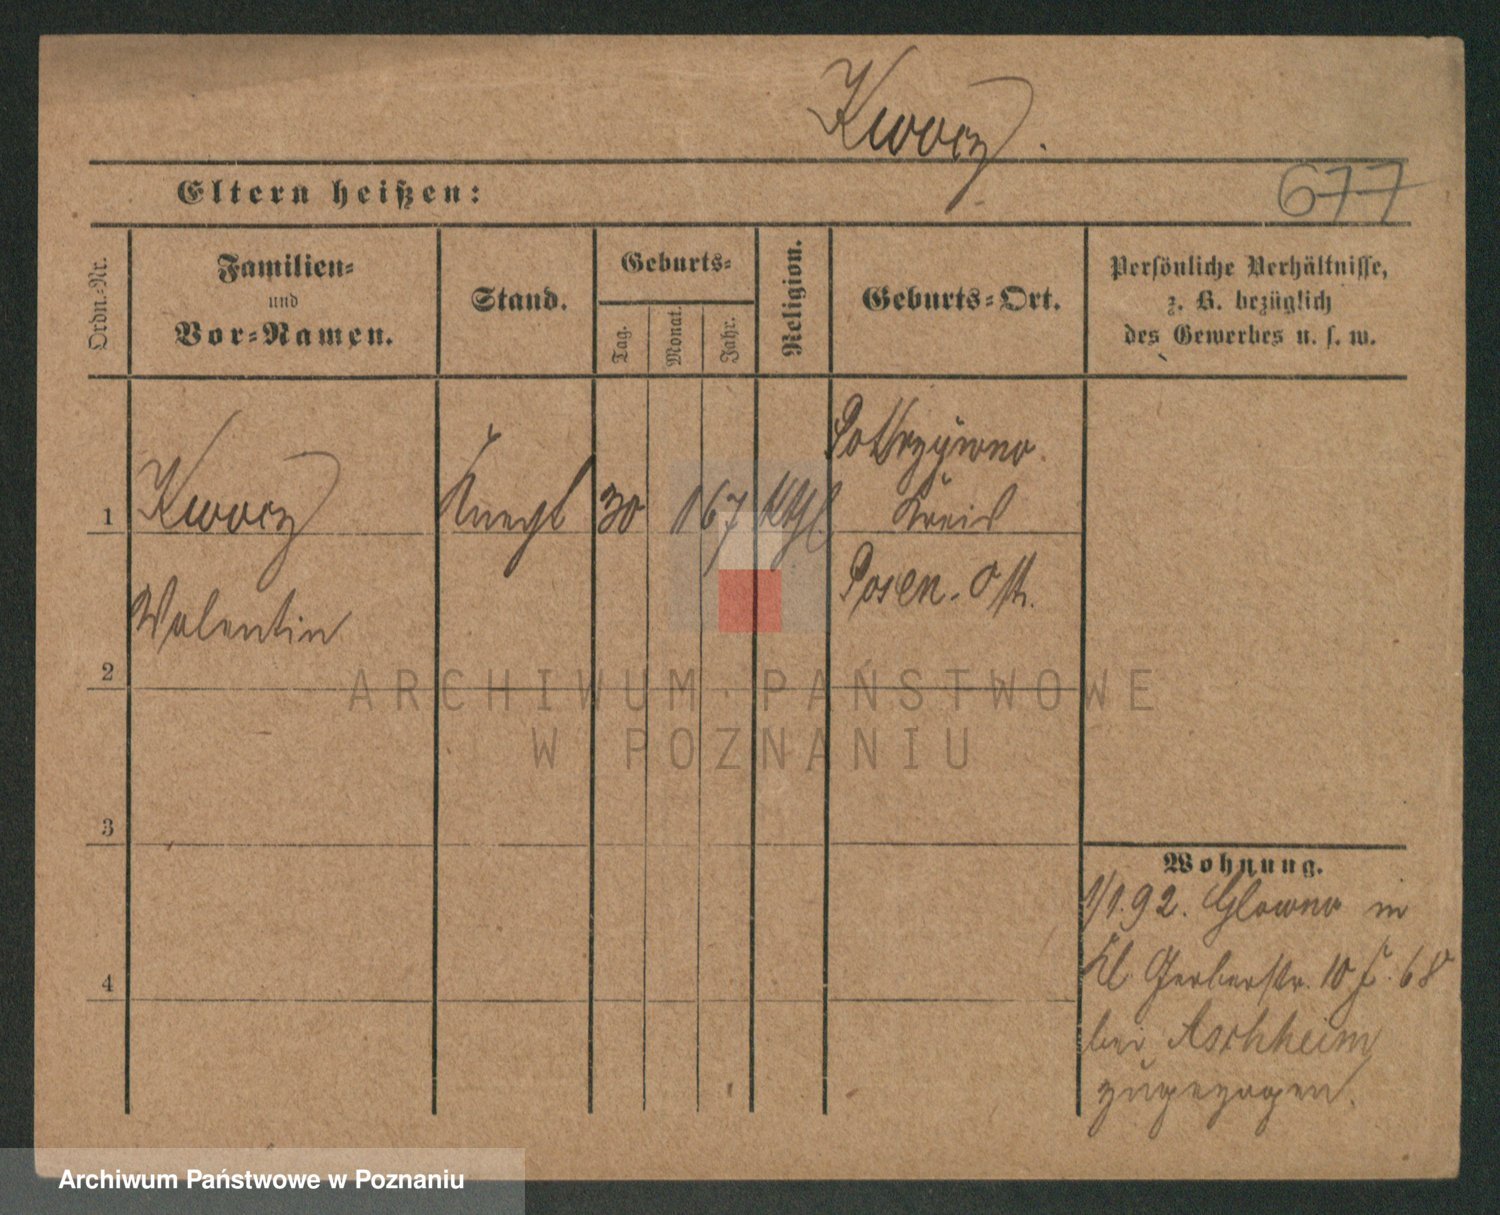 Kwocz.
Eltern heißen:
677
Ordn.-Nr.
Familien-
und
Vor-Namen.
Stand.
Geburts-
Tag.
Monat.
Jahr.
Religion.
Geburts-Ort.
Persönliche Verhältnisse,
z. B. bezüglich
des Gewerbes u. s. w.
1
Kwocz
Valentin
Knecht
30
1
67
Kthl
Kreis
Posen. Ost.
2
3
4
Wohnung.
1/1.92. Glowno in
Kl. Gerberstr. 10
bei Aschheim
zugezogen.
ARCHIWUM PAŃSTWOWE
W POZNANIU
Archiwum Państwowe w Poznaniu